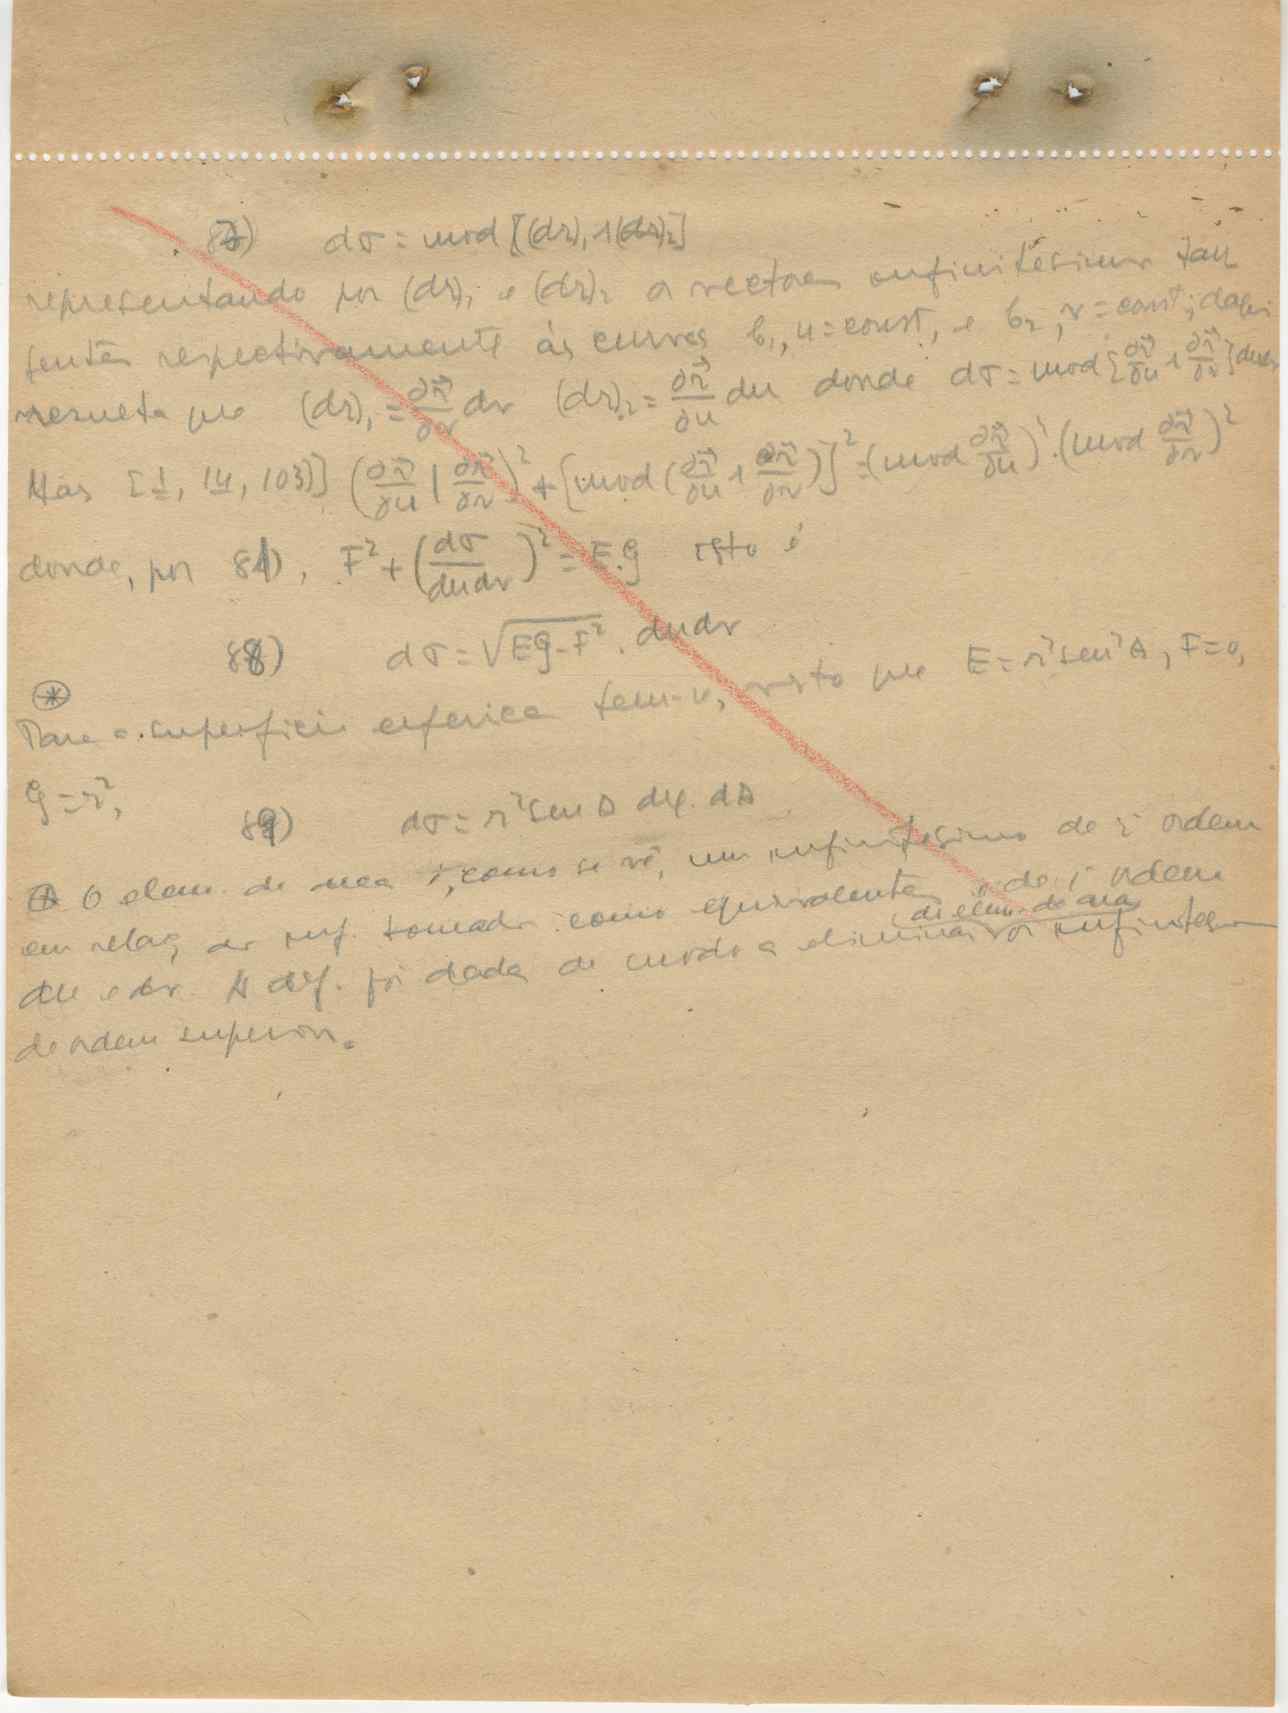 87) dσ = mod [(dr)₁ ∧ (dr)₂]
representando por (dr)₁ e (dr)₂ os vectores infinitésimos tan
gentes respectivamente às curvas C₁, u = const, e C₂, v = const; daqui
resulta que (dr)₁ = ∂r⃗/∂v dv (dr)₂ = ∂r⃗/∂u du donde dσ = mod [∂r⃗/∂u ∧ ∂r⃗/∂v] dudv
Mas [1, 14, 103)] (∂r⃗/∂u | ∂r⃗/∂v)² + [mod (∂r⃗/∂u ∧ ∂r⃗/∂v)]² = (mod ∂r⃗/∂u)² . (mod ∂r⃗/∂v)²
donde, por 81), F² + (dσ/dudv)² = E.G isto é
88) dσ = √(EG - F²) . dudv
⊛
Para a superfície esférica tem-se, visto que E = r² sen² θ, F = 0,
G = r²,
89) dσ = r² sen θ dφ. dθ
⊛ O elem. de área é, como se vê, um infinitésimo de 2ª ordem
em relaç. aos inf. tomados como equivalentes e de 1ª ordem
du e dv. A def. foi dada de modo a eliminar os infinitésimos
do elem. de área
de ordem superior.